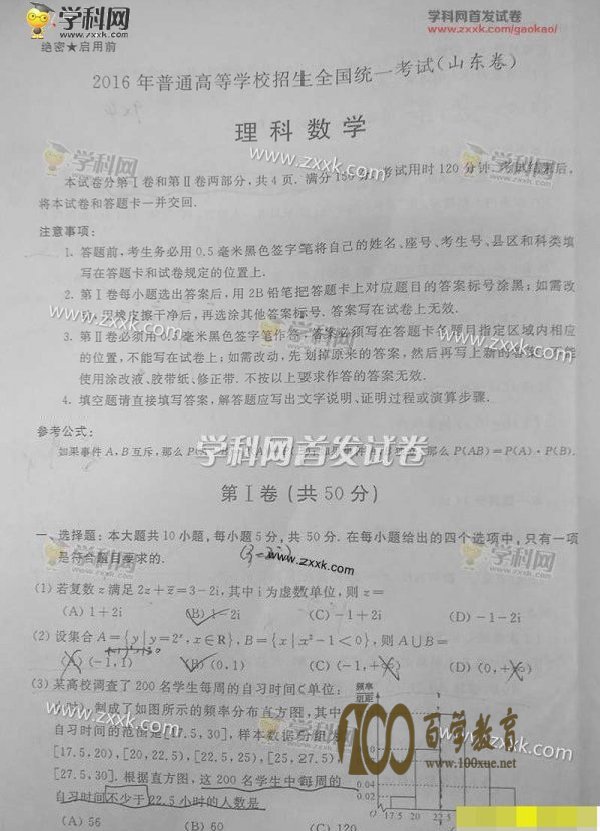 学科网
www.zxxk.com
学科网首发试卷
www.zxxk.com/gaokao/
绝密★启用前
2016年普通高等学校招生全国统一考试(山东卷)
理科数学
学科网
www.zxxk.com
学科网
本试卷分第Ⅰ卷和第Ⅱ卷两部分,共4页.满分150分.考试用时120分钟.考试结束后,
将本试卷和答题卡一并交回.
注意事项:
1. 答题前,考生务必用0.5毫米黑色签字笔将自己的姓名、座号、考生号、县区和科类填
写在答题卡和试卷规定的位置上.
2. 第Ⅰ卷每小题选出答案后,用2B铅笔把答题卡上对应题目的答案标号涂黑;如需改
动,用橡皮擦干净后,再选涂其他答案标号.答案写在试卷上无效.
www.zxxk.com
学科网
www.zxxk.com
3. 第Ⅱ卷必须用0.5毫米黑色签字笔作答,答案必须写在答题卡各题目指定区域内相应
的位置,不能写在试卷上;如需改动,先划掉原来的答案,然后再写上新的答案;不能
使用涂改液、胶带纸、修正带.不按以上要求作答的答案无效.
4. 填空题请直接填写答案,解答题应写出文字说明、证明过程或演算步骤.
参考公式:
如果事件A,B互斥,那么P(那么P(AB)=P(A)·P(B).
学科网首发试卷
第Ⅰ卷(共50分)
一、选择题:本大题共10小题,每小题5分,共50分.在每小题给出的四个选项中,只有一项
是符合题目要求的.
学科网
www.zxxk.com
学科网
(1)若复数z满足2z+z̄=3-2i,其中i为虚数单位,则z=
(A) 1+2i (B) 1-2i (C) -1+2i (D) -1-2i
(2)设集合A={y|y=2ˣ,x∈R},B={x|x²-1<0},则A∪B=
(A) (-1,1) (B) (0,1) (C) (-1,+∞) (D) (0,+∞)
(3)某高校调查了200名学生每周的自习时间(单位:
小时),制成了如图所示的频率分布直方图,其中
自习时间的范围是[17.5,30],样本数据分组为
[17.5,20),[20,22.5),[22.5,25),[25,27.5),
[27.5,30].根据直方图,这200名学生中每周的
自习时间不少于22.5小时的人数是
(A) 56 (B) 60 (C) 120
频率
组距
0.04
0.02
O 17.5 20 22.5
www.zxxk.com
学科网
100百学教育
www.100xue.net